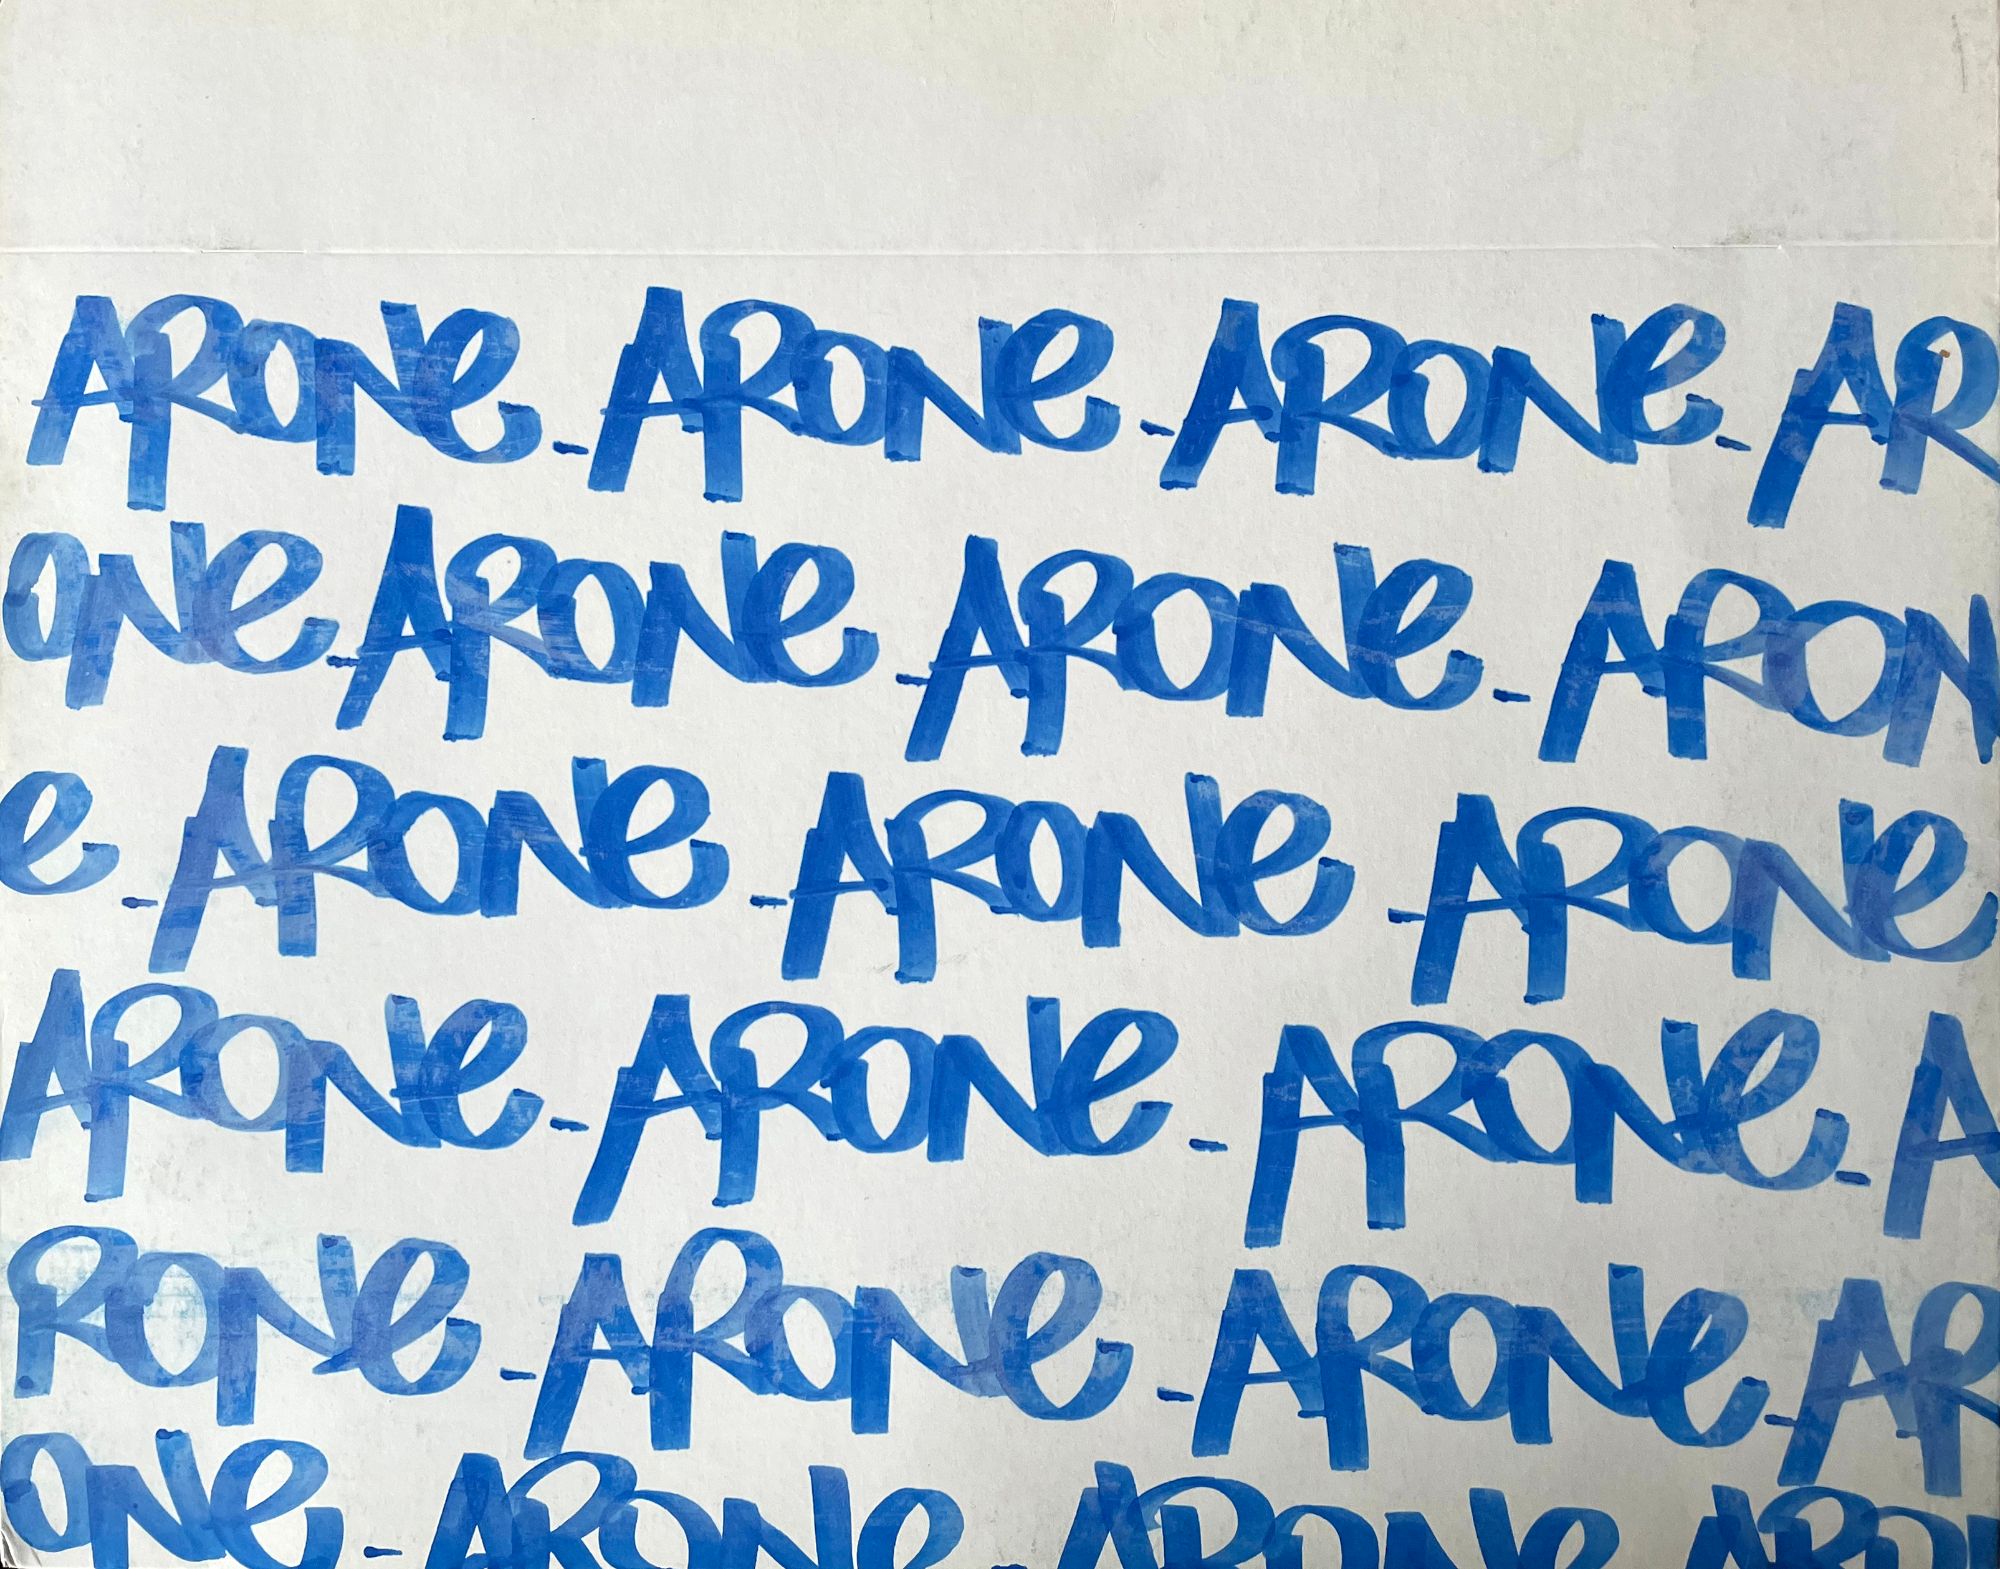 ARONe - ARONe - ARONe - AR
ONe - ARONe - ARONe - ARON
e - ARONe - ARONe - ARONe
ARONe - ARONe - ARONe - A
RONe - ARONe - ARONe - AR
ONe - ARONe - ARONe ARON